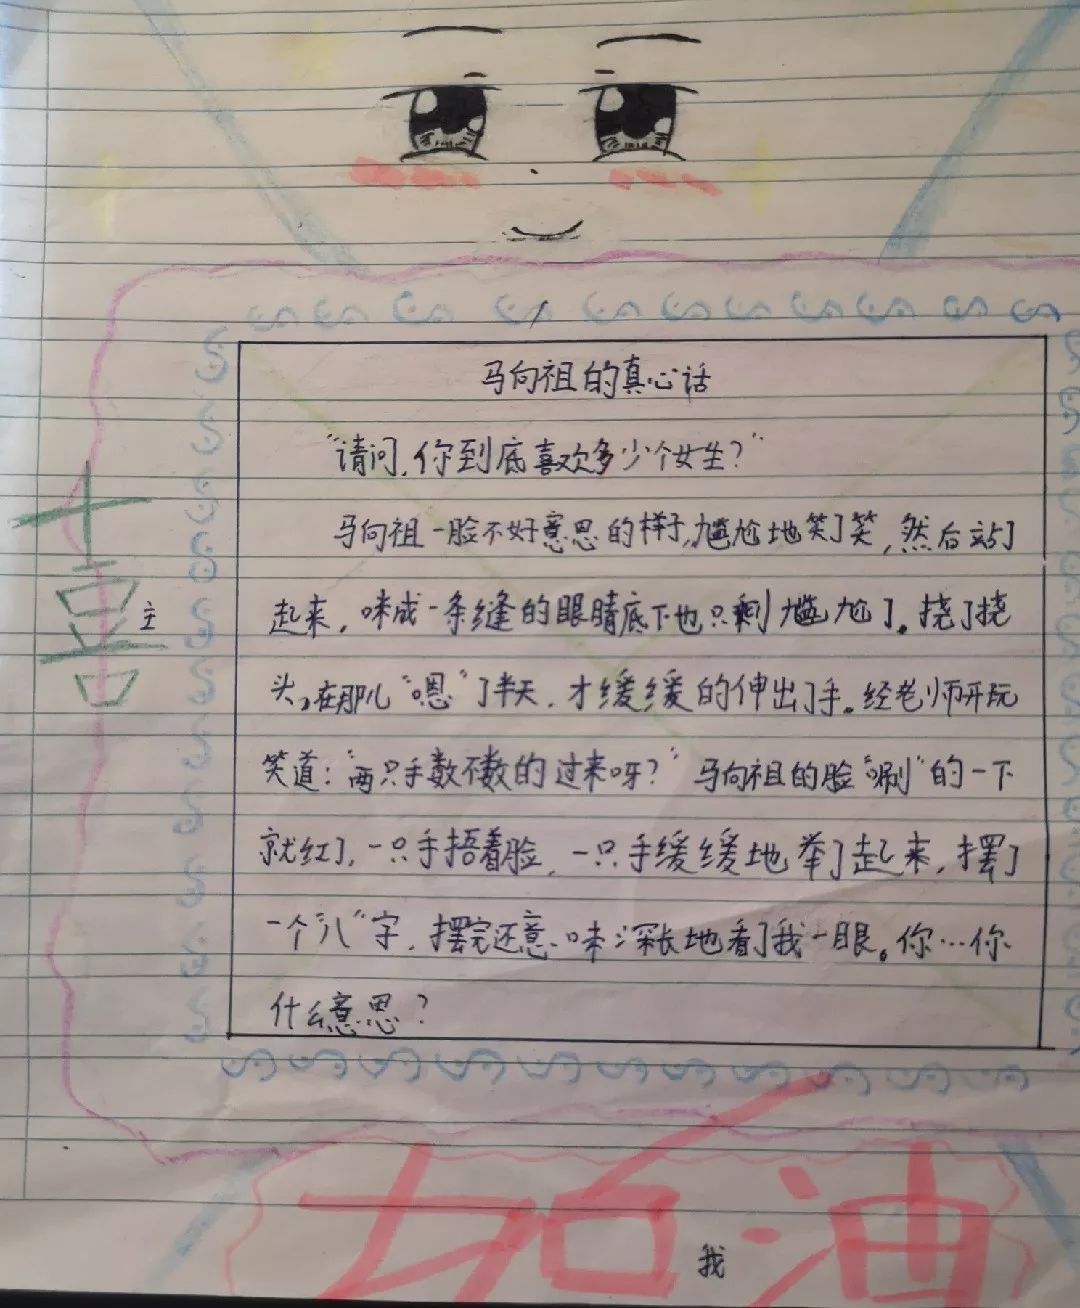 马向祖的真心话
“请问,你到底喜欢多少个女生?”
马向祖一脸不好意思的样子,尴尬地笑了笑,然后站了
起来,咪成一条缝的眼睛底下也只剩尴尬了。挠了挠
头,在那儿“嗯”了半天,才缓缓的伸出了手。经老师开玩
笑道:“两只手数不数的过来呀?”马向祖的脸“唰”的一下
就红了,一只手捂着脸,一只手缓缓地举了起来,摆了
一个“八”字,摆完还意味深长地看了我一眼。你…你
什么意思?
十
喜
主
加油
我